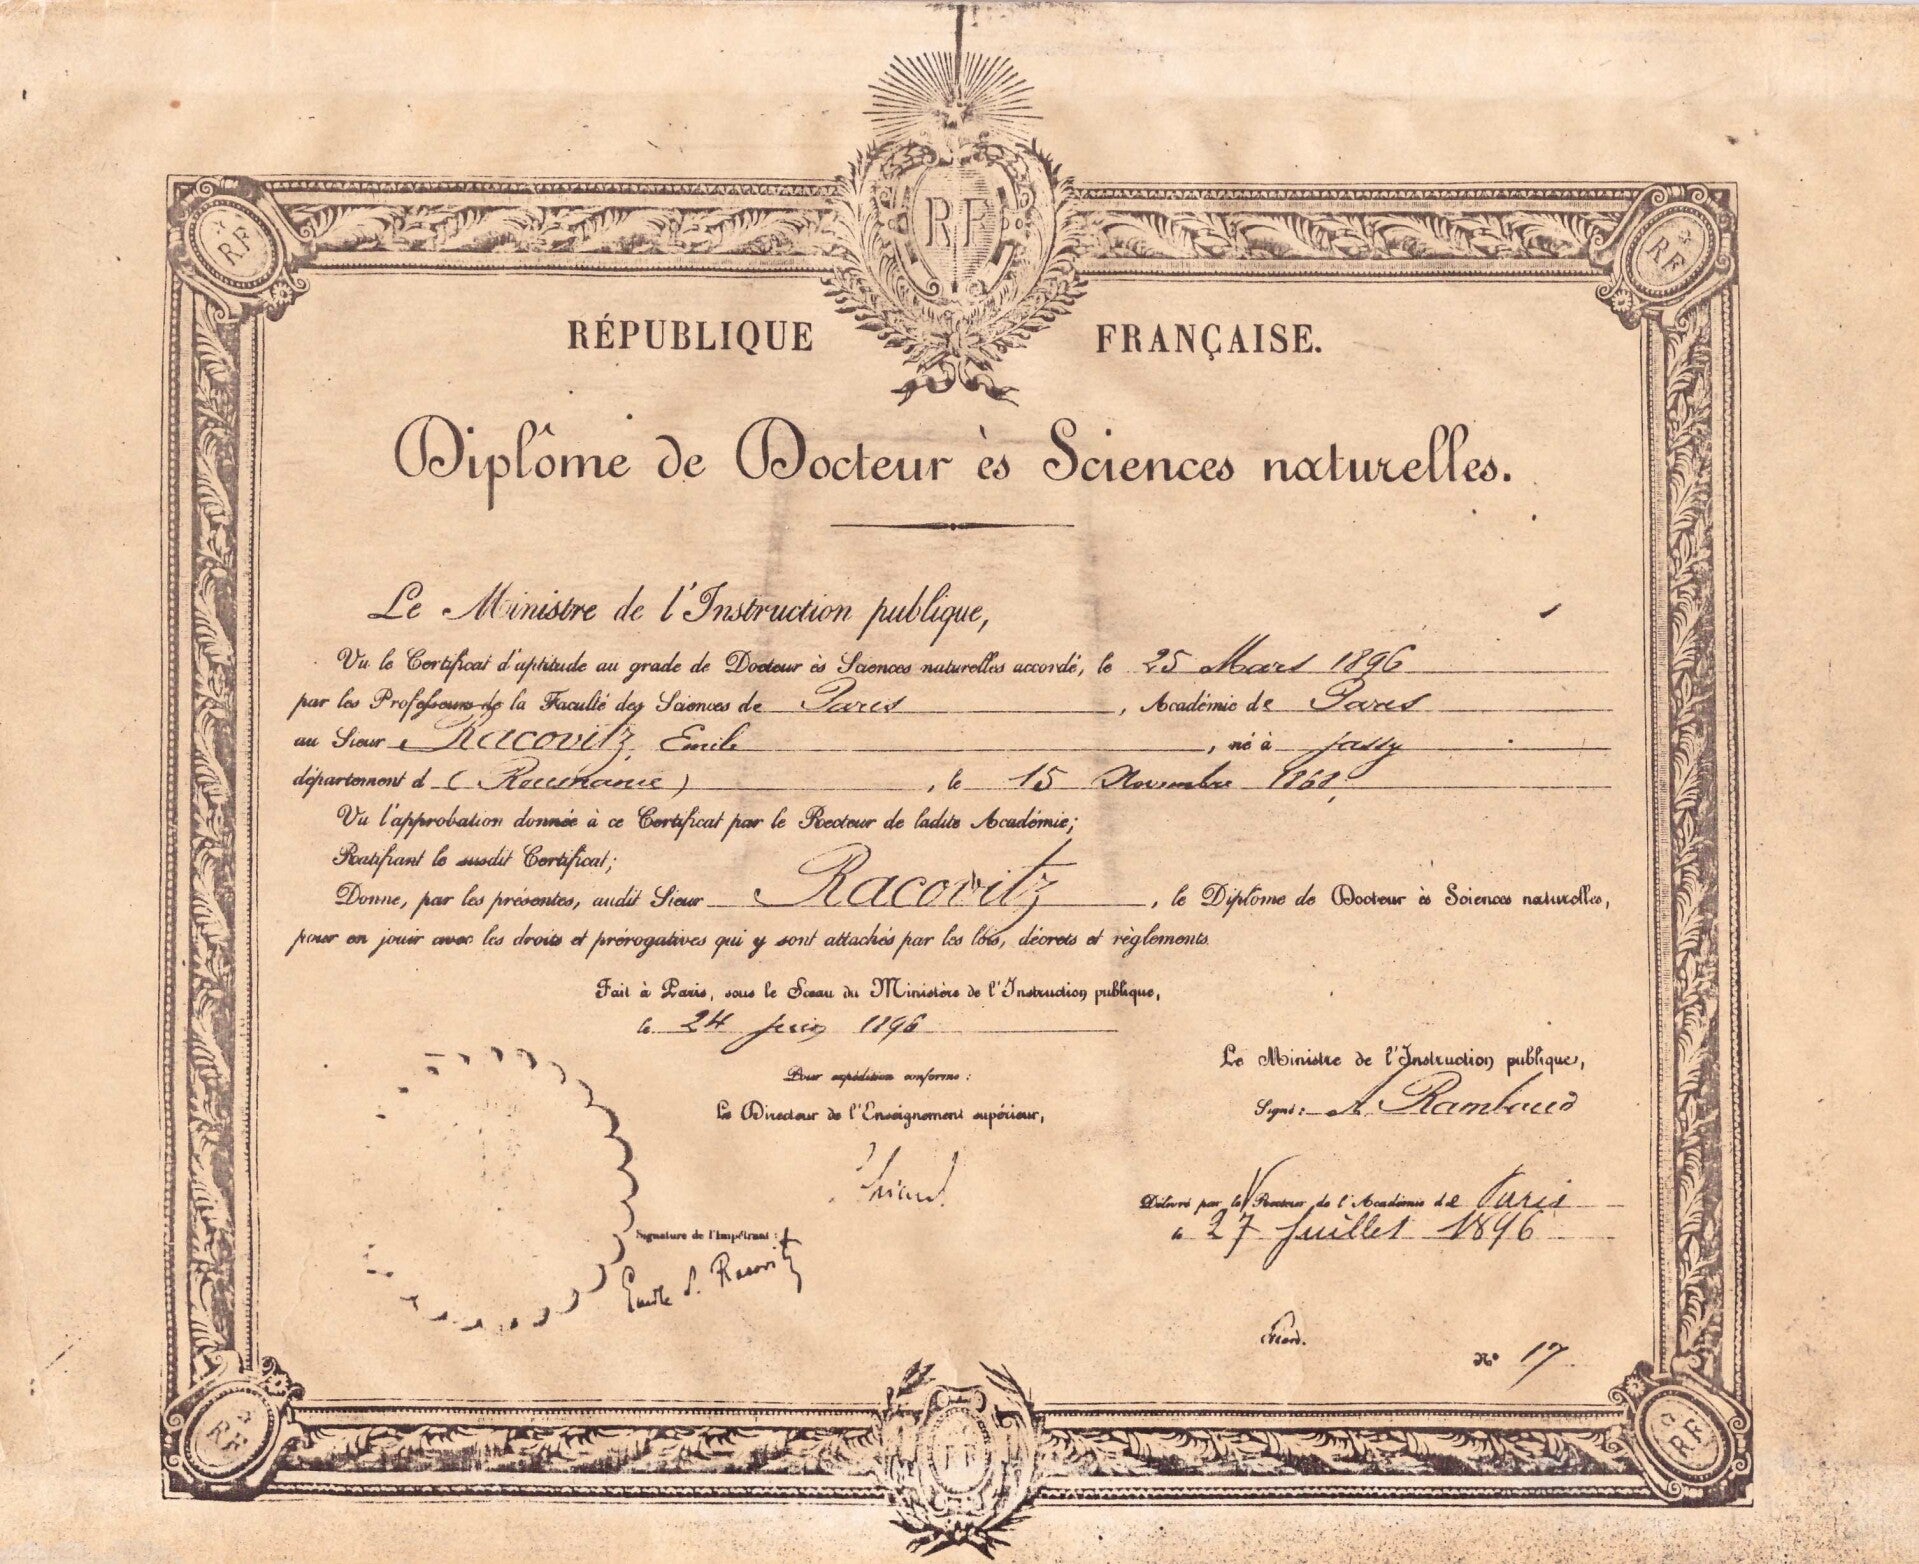 RF
RF
RF
RÉPUBLIQUE FRANÇAISE.
Diplôme de Docteur ès Sciences naturelles.
Le Ministre de l'Instruction publique,
Vu le Certificat d'aptitude au grade de Docteur ès Sciences naturelles accordé, le 25 Mars 1896
par les Professeurs de la Faculté des Sciences de Paris, Académie de Paris
au Sieur Racovitz Emile, né à Jassy
département d (Roumanie), le 15 Novembre 1868,
Vu l'approbation donnée à ce Certificat par le Recteur de ladite Académie;
Ratifiant le susdit Certificat;
Donne, par les présentes, audit Sieur Racovitz, le Diplôme de Docteur ès Sciences naturelles,
pour en jouir avec les droits et prérogatives qui y sont attachés par les lois, décrets et règlements.
Fait à Paris, sous le Sceau du Ministère de l'Instruction publique,
le 24 Juin 1896
Pour expédition conforme:
Le Directeur de l'Enseignement supérieur,
Le Ministre de l'Instruction publique,
Signé: A. Rambaud
Délivré par le V Recteur de l'Académie de Paris
le 27 Juillet 1896
Signature de l'Impétrant:
Emile Racovitz
N° 17
RF
RF
RF